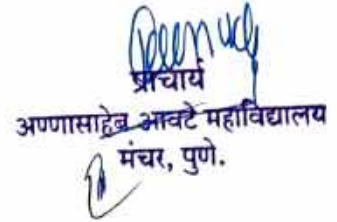 प्राचार्य
अण्णासाहेब आवटे महाविद्यालय
मंचर, पुणे.